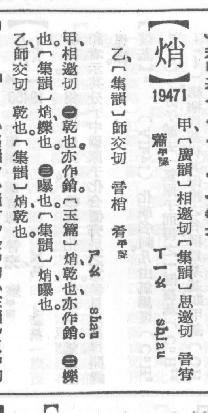 【焇】
19471
甲、〔廣韻〕相邀切〔集韻〕思邀切 音宵
蕭平聲 ㄒㄧㄠ shiau
乙、〔集韻〕師交切 音梢 肴平聲
ㄕㄠ shau
甲、相邀切 ㊀乾也。亦作銷。〔玉篇〕焇，乾也。亦作銷。㊁爍
也。〔集韻〕焇，爍也。㊂曝也。〔集韻〕焇，曝也。
乙、師交切 乾也。〔集韻〕焇，乾也。